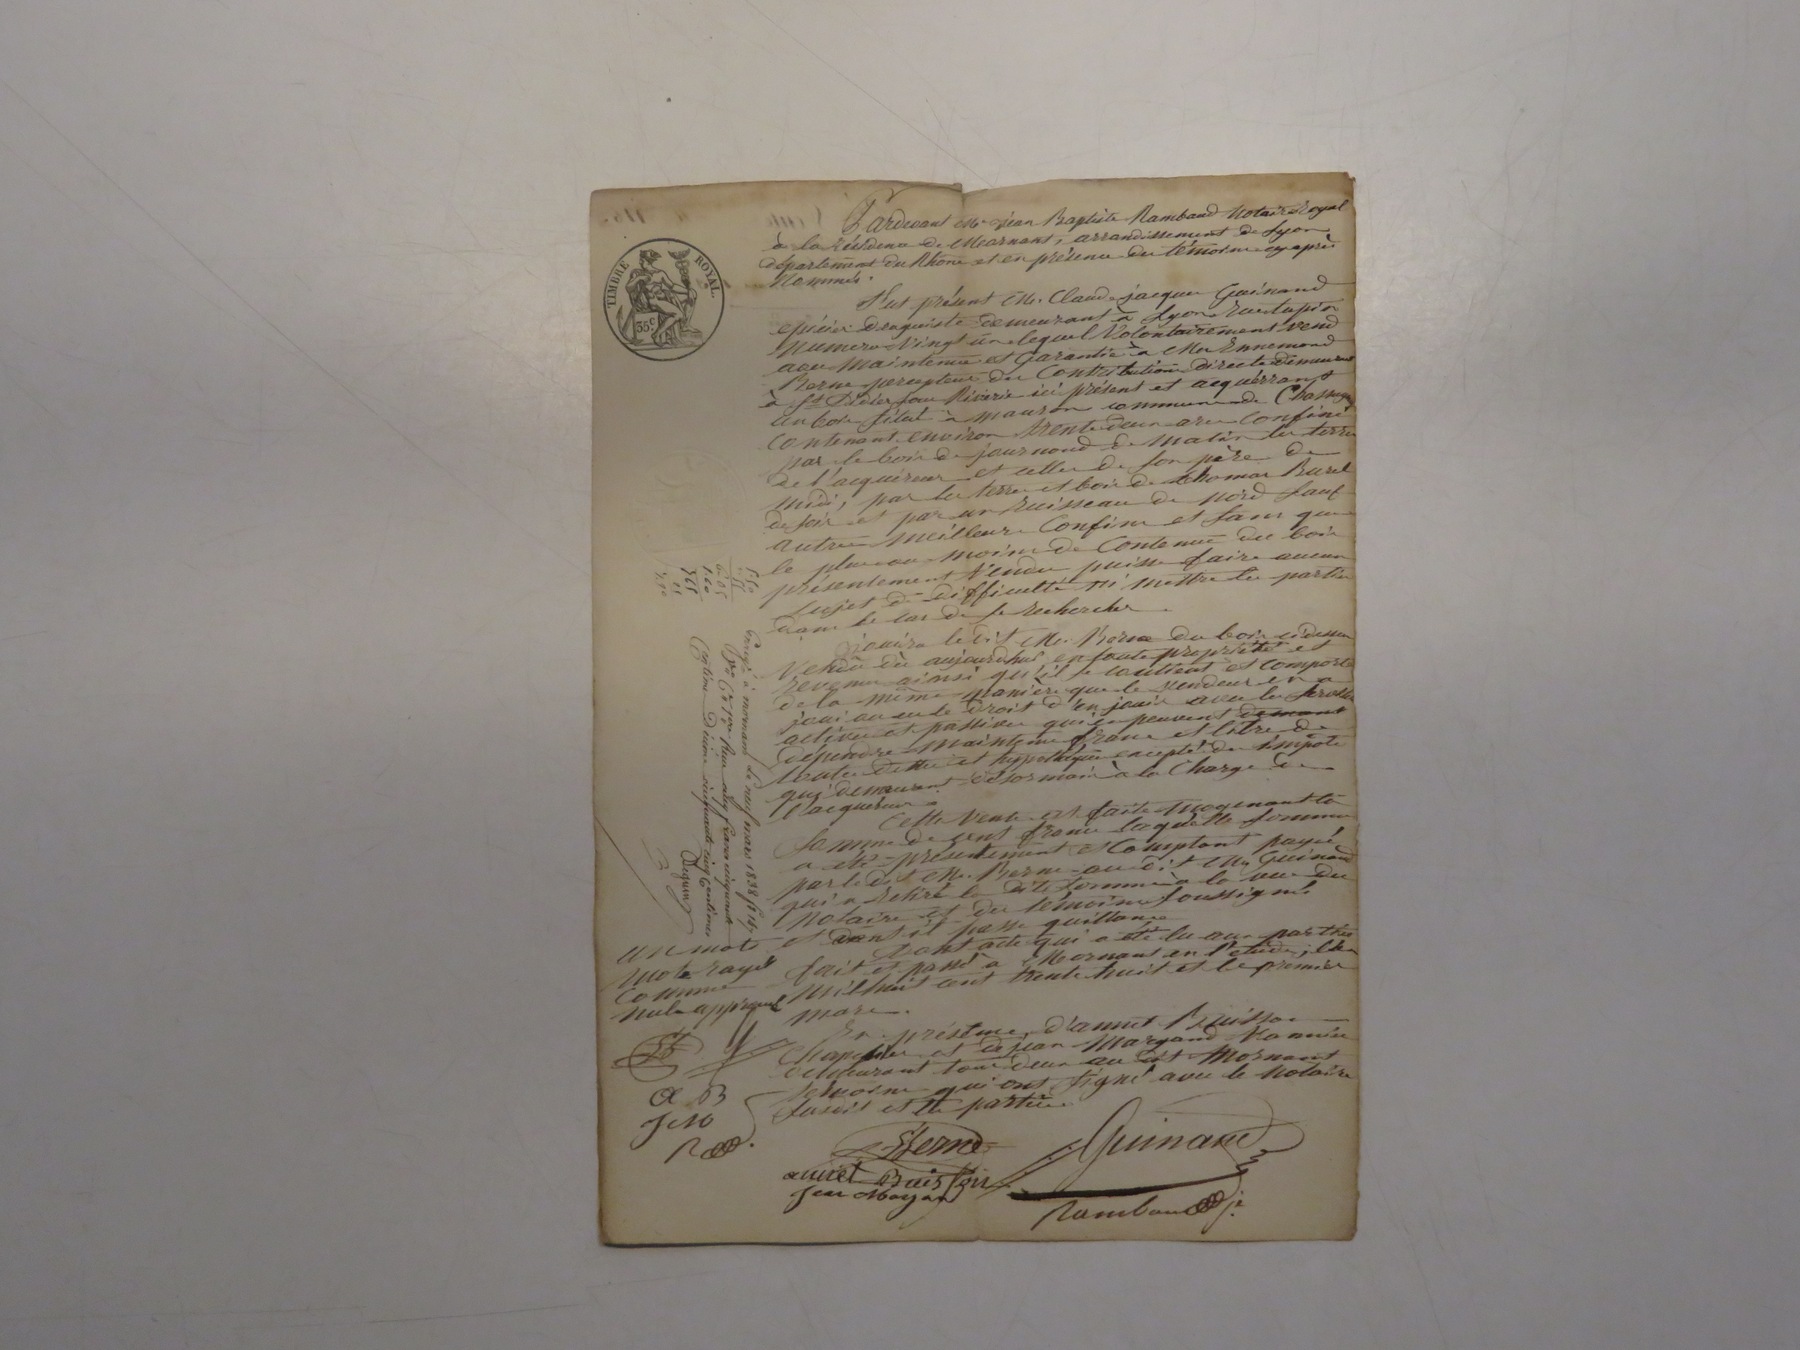 TIMBRE ROYAL.
35c
Pardevant Me Jean Baptiste Rambaud Notaire Royal
à la résidence de Mornant, arrondissement de Lyon
département du Rhône et en présence des témoins cy après
Nommés.
Fut présent Mr. Claude jacques Guinand
epicier droguiste demeurant à Lyon Rue Lupin
Numero Vingt un lequel Volontairement vend
avec Maintenue et Garantie à Mr Ennemond
Berne percepteur des Contributions directes demeurant
à St Didier sous Riverie ici présent et acquérrant
un bois situé à mauron commune de
contenant environ trente deux ares confiné
par le bois de journoud de matin les terres
de l'acquéreur et celles de son père de
midi, par les terres et bois de thomas Burel
de soir et par un Ruisseau de nord sauf
autres meilleurs Confins et sans que
le plus ou moins de Contenue du bois
présentement Vendu puisse faire aucun
sujet de difficulté ni mettre les parties
dans le cas de se rechercher.
jouira le dit Mr. Berne du bois ci dessus
Vendu dès aujourdhui en toute propriété et
revenus ainsi qu'il se contient et comporte
de la même manière que le vendeur en a
joui ou eu le droit d'en jouir avec les servitudes
actives et passives qui en peuvent demant
dépendre Maintenu franc et libre de
toutes dettes et hypothèques excepté des impôts
qui demeurent désormais à la Charge de
l'acquéreur.
Cette Vente est faite moyenant la
somme de cent francs laquelle somme
a été présentement et comptant payée
par le dit Mr. Berne au dit Mr Guinand
qui a retiré la dite somme à la vue du
Notaire et des témoins soussignés
et dont il passe quittance
Dont acte qui a été lu aux parties
fait et passé à Mornant en l'étude, l'an
mil huit cent trente huit et le premier
mars.
En présence d'annet Buisson
Chapelier et de jean Vannier
demeurant tous deux au dit Mornant
témoins qui ont signé avec le Notaire
susdit et les parties
Enrgé à mornant Le neuf mars 1838
reçu cinq francs cinquante
centimes Dixme cinquante cinq centimes
un mot
mots rayés
comme
nuls approuvé
a B
Berne
Guinand
annet Buisson
Jean
Rambaud